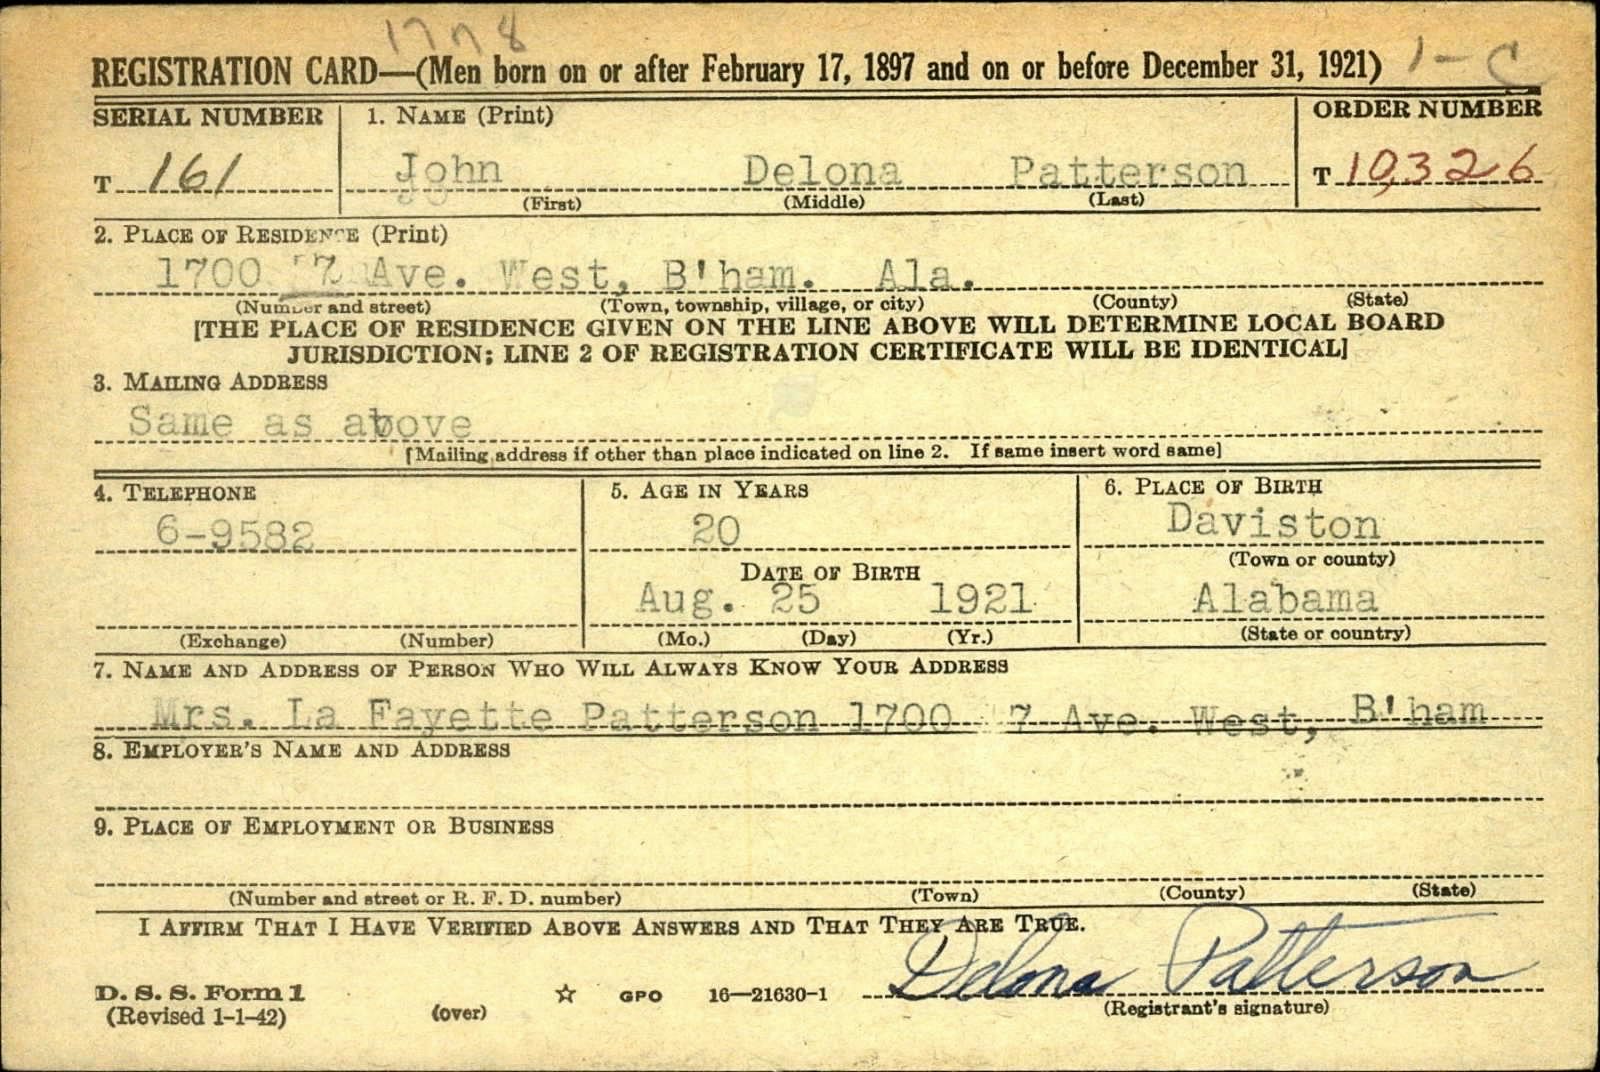 1778
REGISTRATION CARD—(Men born on or after February 17, 1897 and on or before December 31, 1921) 1-C
SERIAL NUMBER 1. NAME (Print) ORDER NUMBER
T 161 John Delona Patterson T 10,326
(First) (Middle) (Last)
2. PLACE OF RESIDENCE (Print)
1700 7 Ave. West, B'ham. Ala.
(Number and street) (Town, township, village, or city) (County) (State)
[THE PLACE OF RESIDENCE GIVEN ON THE LINE ABOVE WILL DETERMINE LOCAL BOARD
JURISDICTION; LINE 2 OF REGISTRATION CERTIFICATE WILL BE IDENTICAL]
3. MAILING ADDRESS
Same as above
[Mailing address if other than place indicated on line 2. If same insert word same]
4. TELEPHONE 5. AGE IN YEARS 6. PLACE OF BIRTH
6-9582 20 Daviston
(Town or county)
DATE OF BIRTH
Aug. 25 1921 Alabama
(Exchange) (Number) (Mo.) (Day) (Yr.) (State or country)
7. NAME AND ADDRESS OF PERSON WHO WILL ALWAYS KNOW YOUR ADDRESS
Mrs. La Fayette Patterson 1700 7 Ave. West, B'ham
8. EMPLOYER'S NAME AND ADDRESS
9. PLACE OF EMPLOYMENT OR BUSINESS
(Number and street or R. F. D. number) (Town) (County) (State)
I AFFIRM THAT I HAVE VERIFIED ABOVE ANSWERS AND THAT THEY ARE TRUE.
Delona Patterson
D. S. S. Form 1
(Revised 1-1-42) (over) ☆ GPO 16—21630-1 (Registrant's signature)